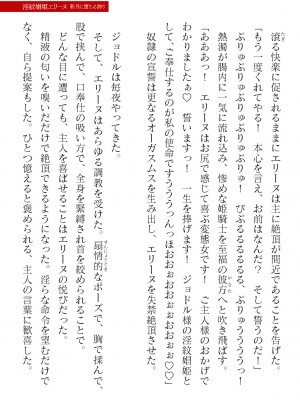 淫紋娼姫エリーヌ 新月に堕ちる誇り
滾る快楽に促されるままにエリーヌは主に絶頂が間近であることを告げた。
「もう一度くれてやる！　本心を言え、お前はなんだ？　そして誓うのだ！」
熱濁が腸内に一気に流れ込み、惨めな姫騎士を至福の彼方へと吹き飛ばす。
「あああっ！　エリーヌはお尻で感じて喜ぶ変態女です！　ご主人様のおかげで
わかりましたぁ♡　誓いますっ！　一生を捧げます！　ジョドル様の淫紋娼姫と
奴隷の宣誓は更なるオーガスムスを生み出し、エリーヌを失禁絶頂させた。
ジョドルは毎夜やってきた。
そして、エリーヌはあらゆる調教を受けた。扇情的なポーズで、胸で揉んで、
股で挟んで、口奉仕の吸い方で、全身を緊縛され首を絞められることで。
どんな目に遭っても、主人を喜ばせることはエリーヌの悦びだった。
精液の匂いを嗅いだだけで絶頂できるようになった。淫らな命令を望むだけで
なく、自ら提案もした。ひとつ憶えると褒められる、主人の言葉に歓喜した。